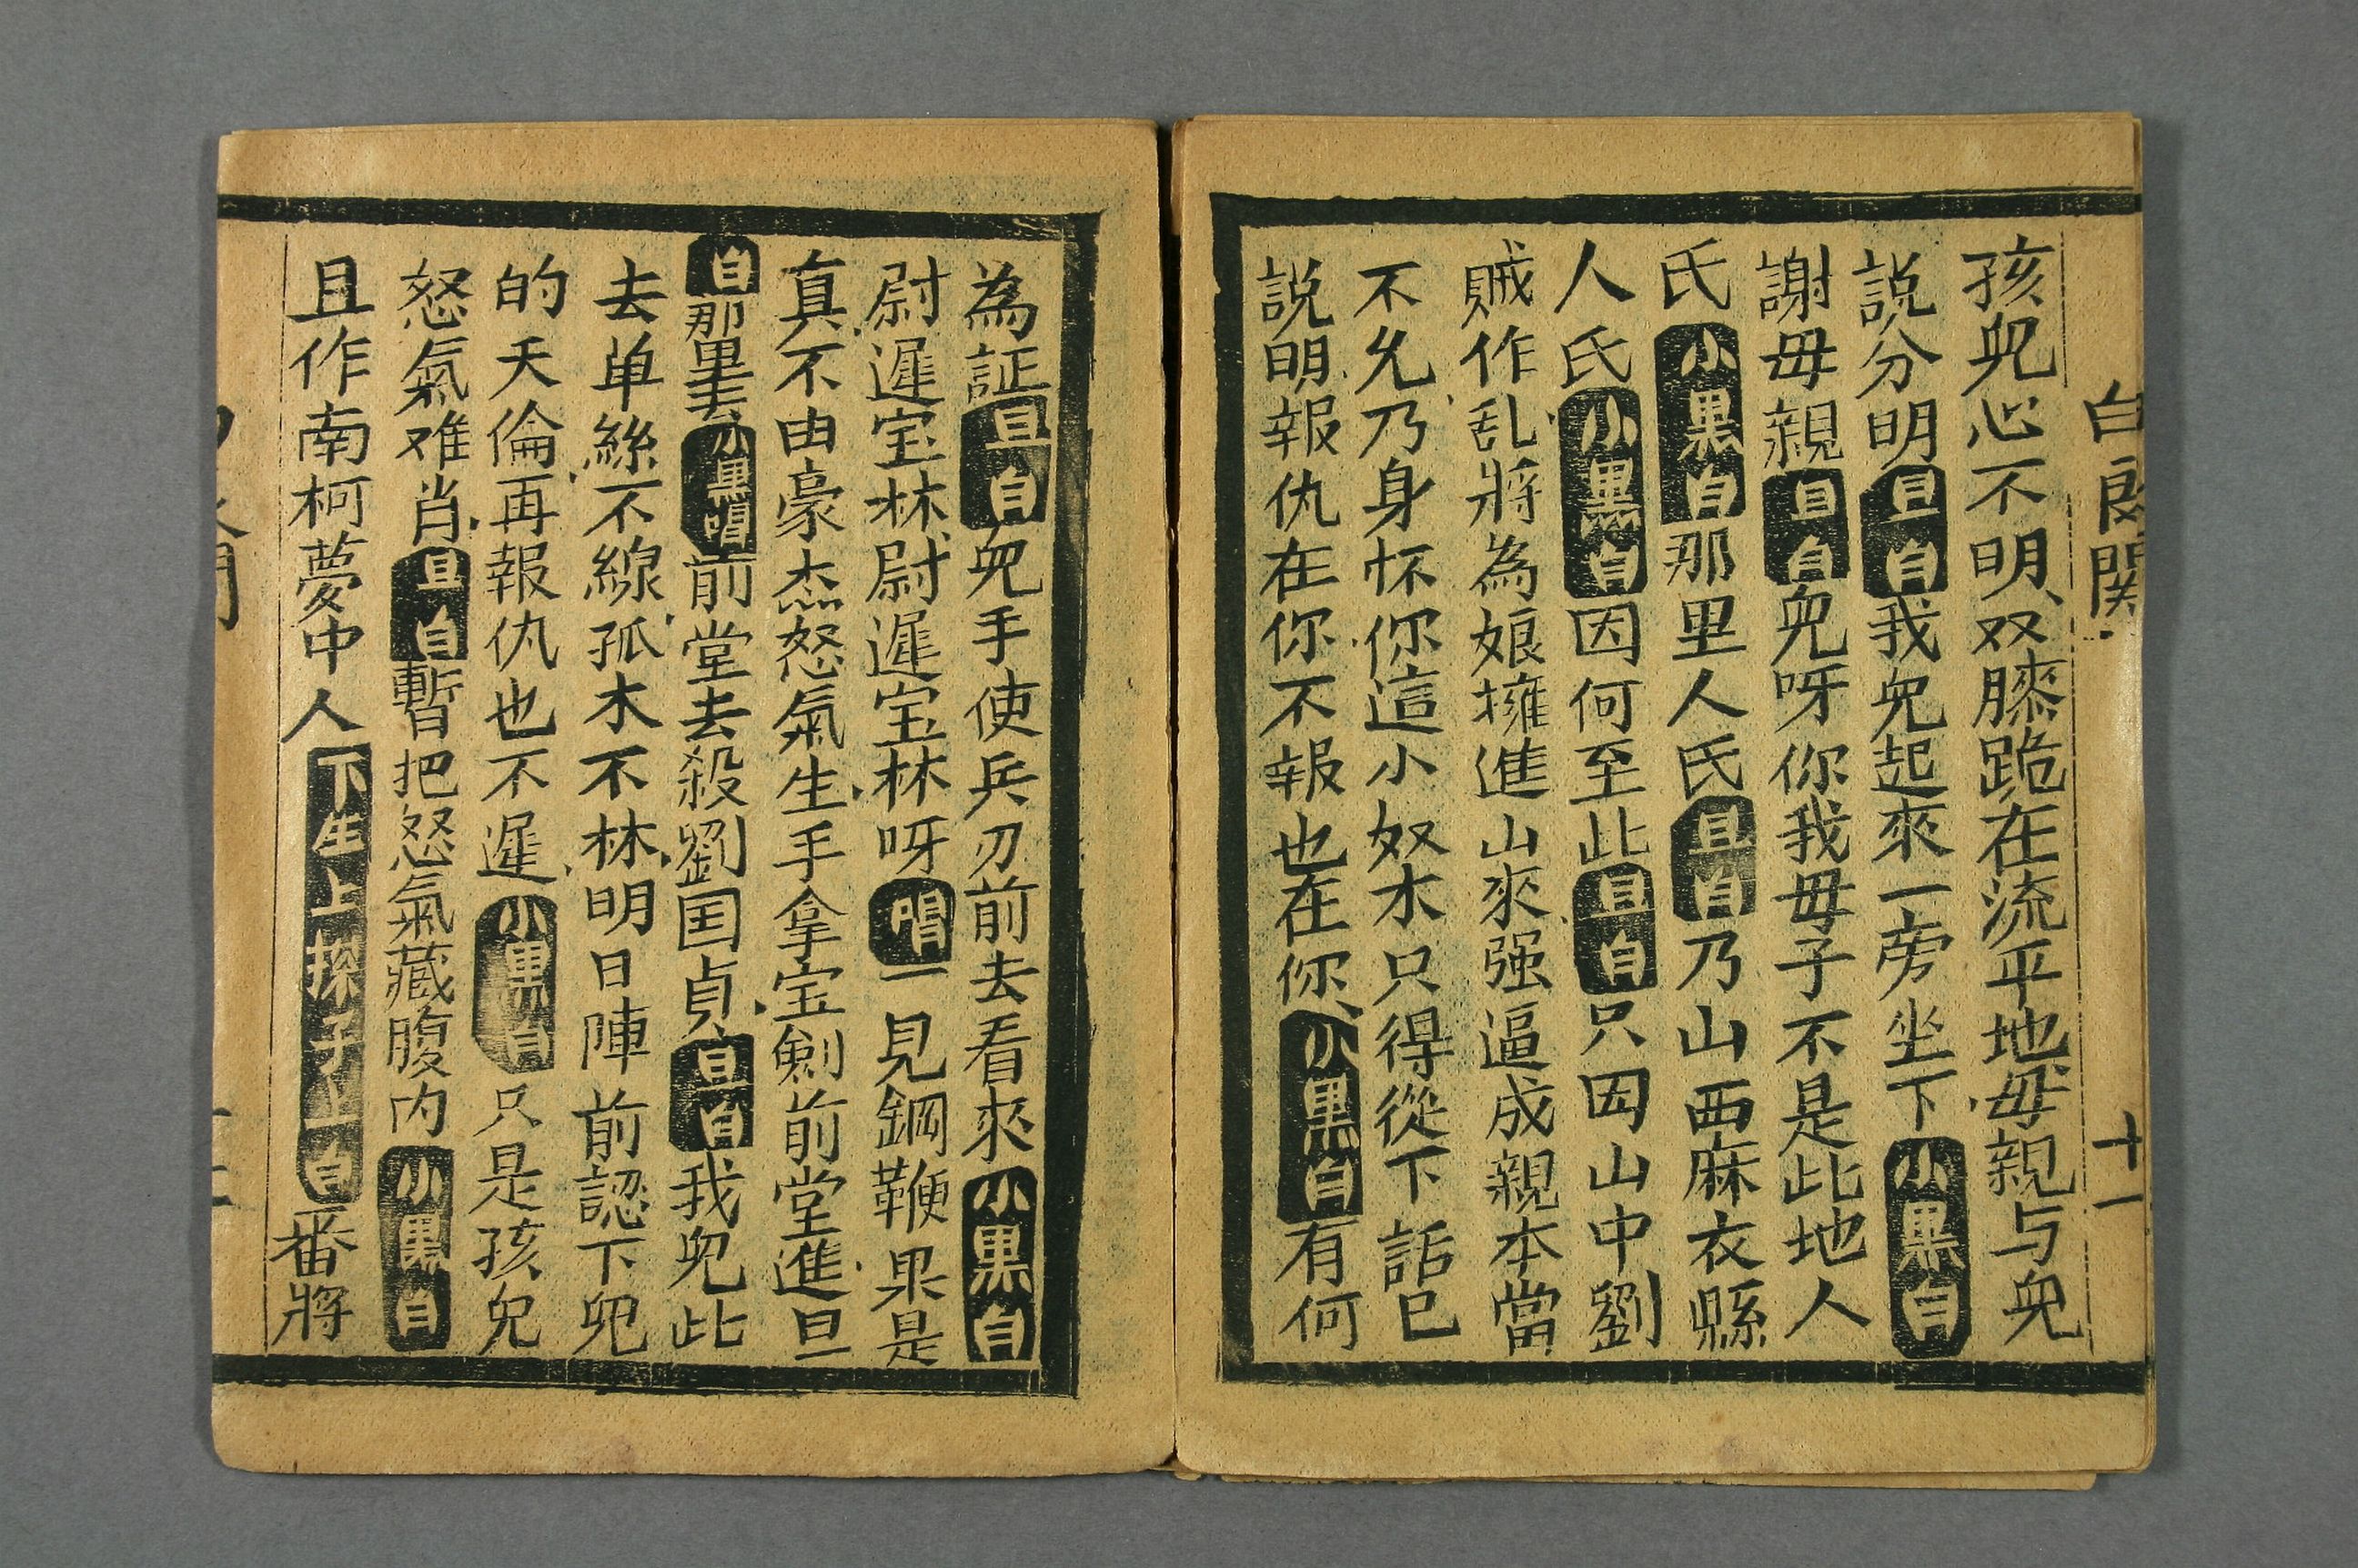 白良関
十一
孩兒心不明双膝跪在流平地毋親与兒
説分明旦白我兒起來一旁坐下小黒白
謝毋親旦白兒呀你我毋子不是此地人
氏小黒白那里人氏旦白乃山西麻衣縣
人氏小黒白因何至此旦白只因山中劉
賊作乱將為娘擁進山來强逼成親本當
不允乃身怀你這小奴才只得從下話已
説明報仇在你不報也在你小黒白有何
為証旦白兒手使兵刃前去看來小黒白
尉遲宝林尉遲宝林呀唱一見鋼鞭果是
真不由豪杰怒氣生手拿宝劍前堂進旦
白那里去小黒唱前堂去殺劉国貞旦白我兒此
去单絲不線孤木不林明日陣前認下兒
的天倫再報仇也不遲小黒白只是孩兒
怒氣难肖旦白暫把怒氣藏腹内小黒白
且作南柯夢中人下生上探子上白番將